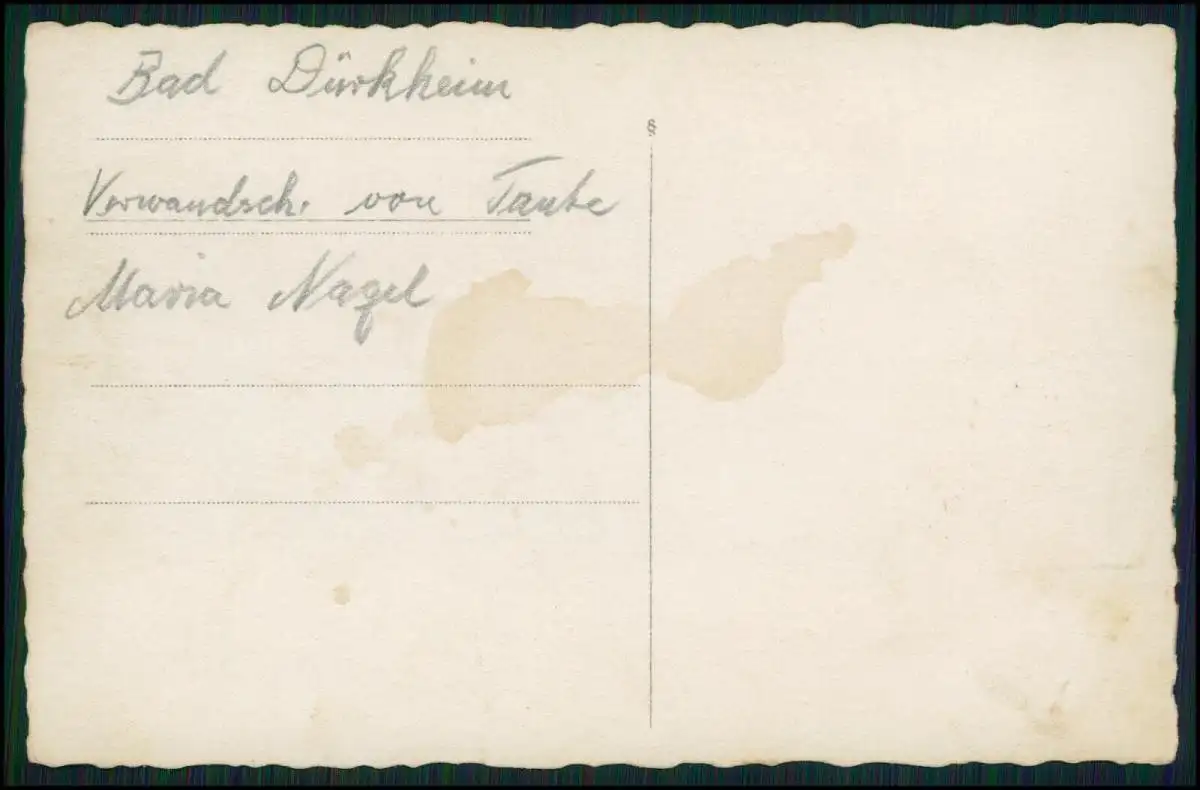 Bad Dürkheim
§
Verwandsch. von Tante
Maria Nagel